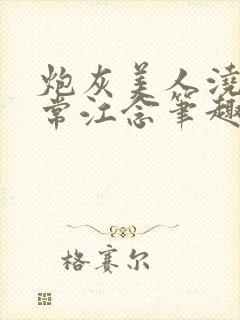 炮灰美人浇
常江念笔趣
格赛尔